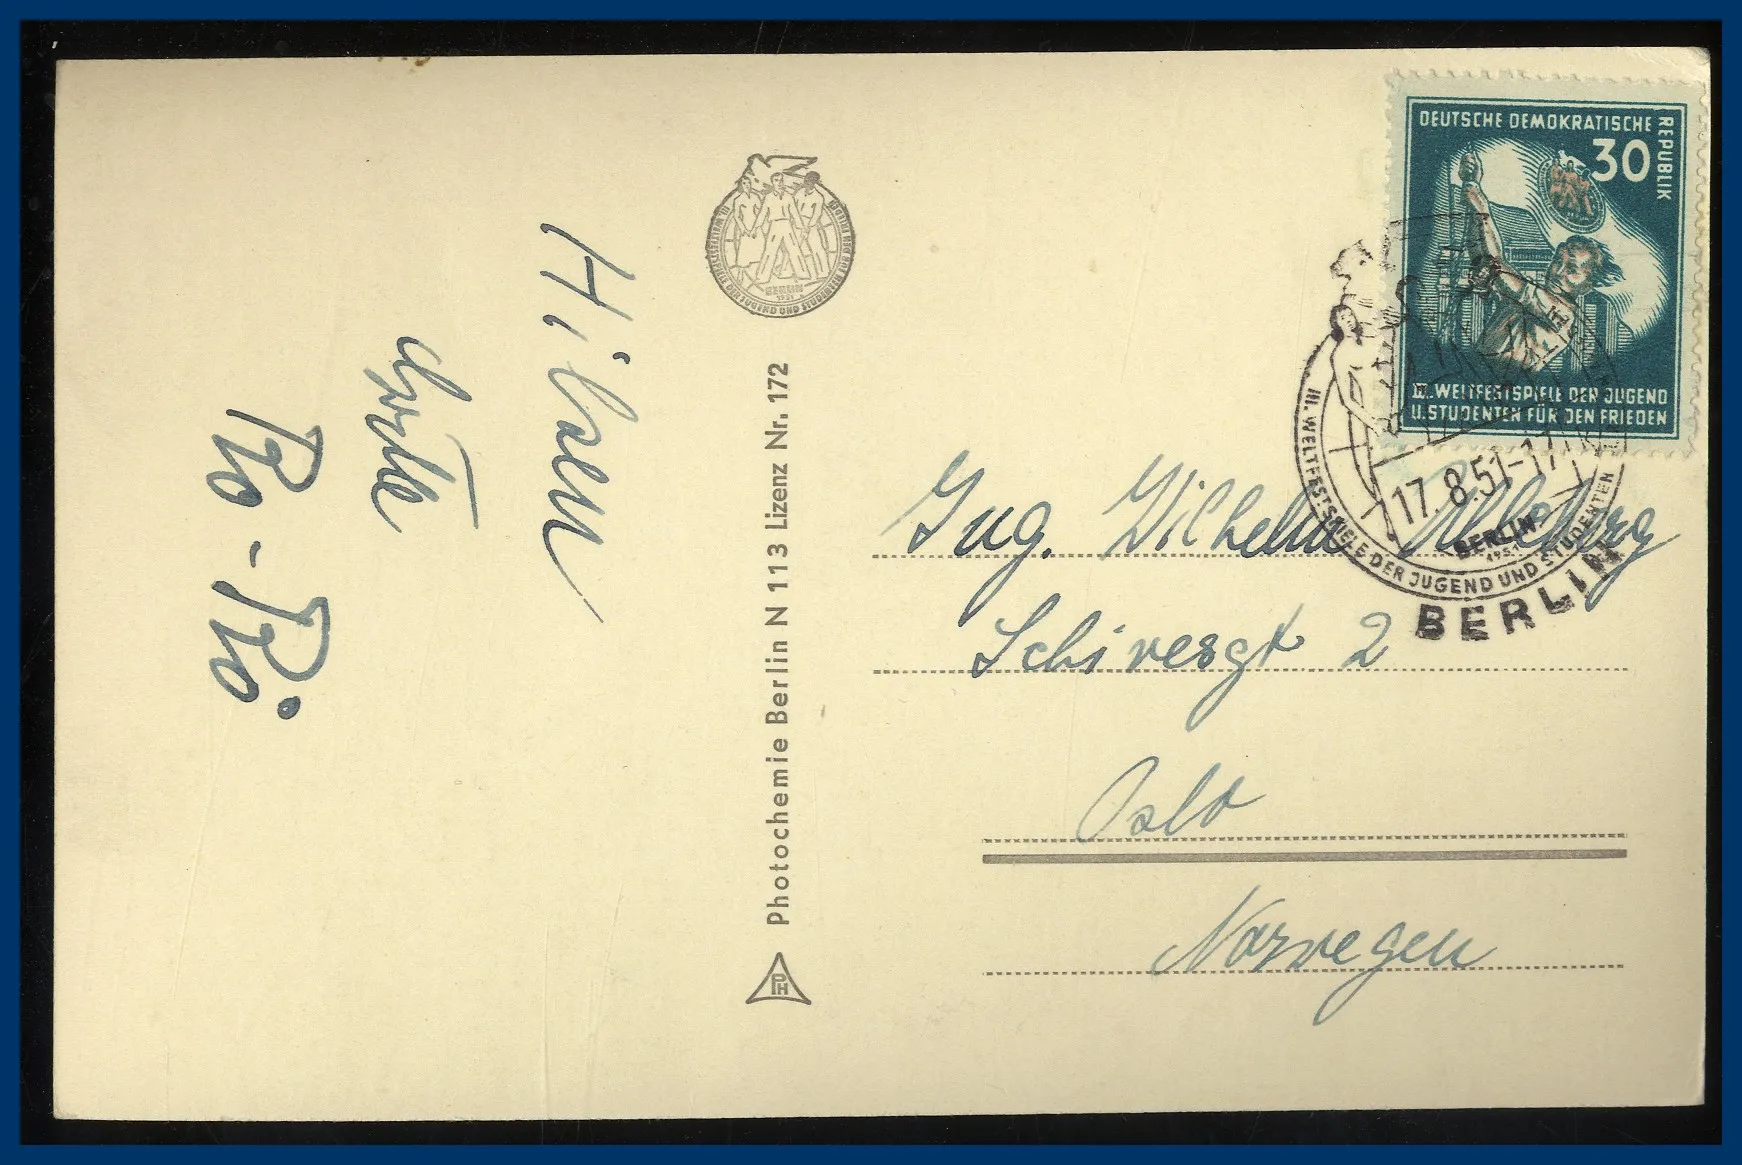 Hilsen
Ro-Ro
III. WELTFESTSPIELE DER JUGEND UND STUDENTEN FÜR DEN FRIEDEN
BERLIN
1951
Photochemie Berlin N 113 Lizenz Nr. 172
PH
DEUTSCHE DEMOKRATISCHE
REPUBLIK
30
III. WELTFESTSPIELE DER JUGEND
U. STUDENTEN FÜR DEN FRIEDEN
17.8.51-17
BERLIN
1951
III. WELTFESTSPIELE DER JUGEND UND STUDENTEN
BERLIN
Ing. Wilhelm
Schivesgt 2
Oslo
Norwegen